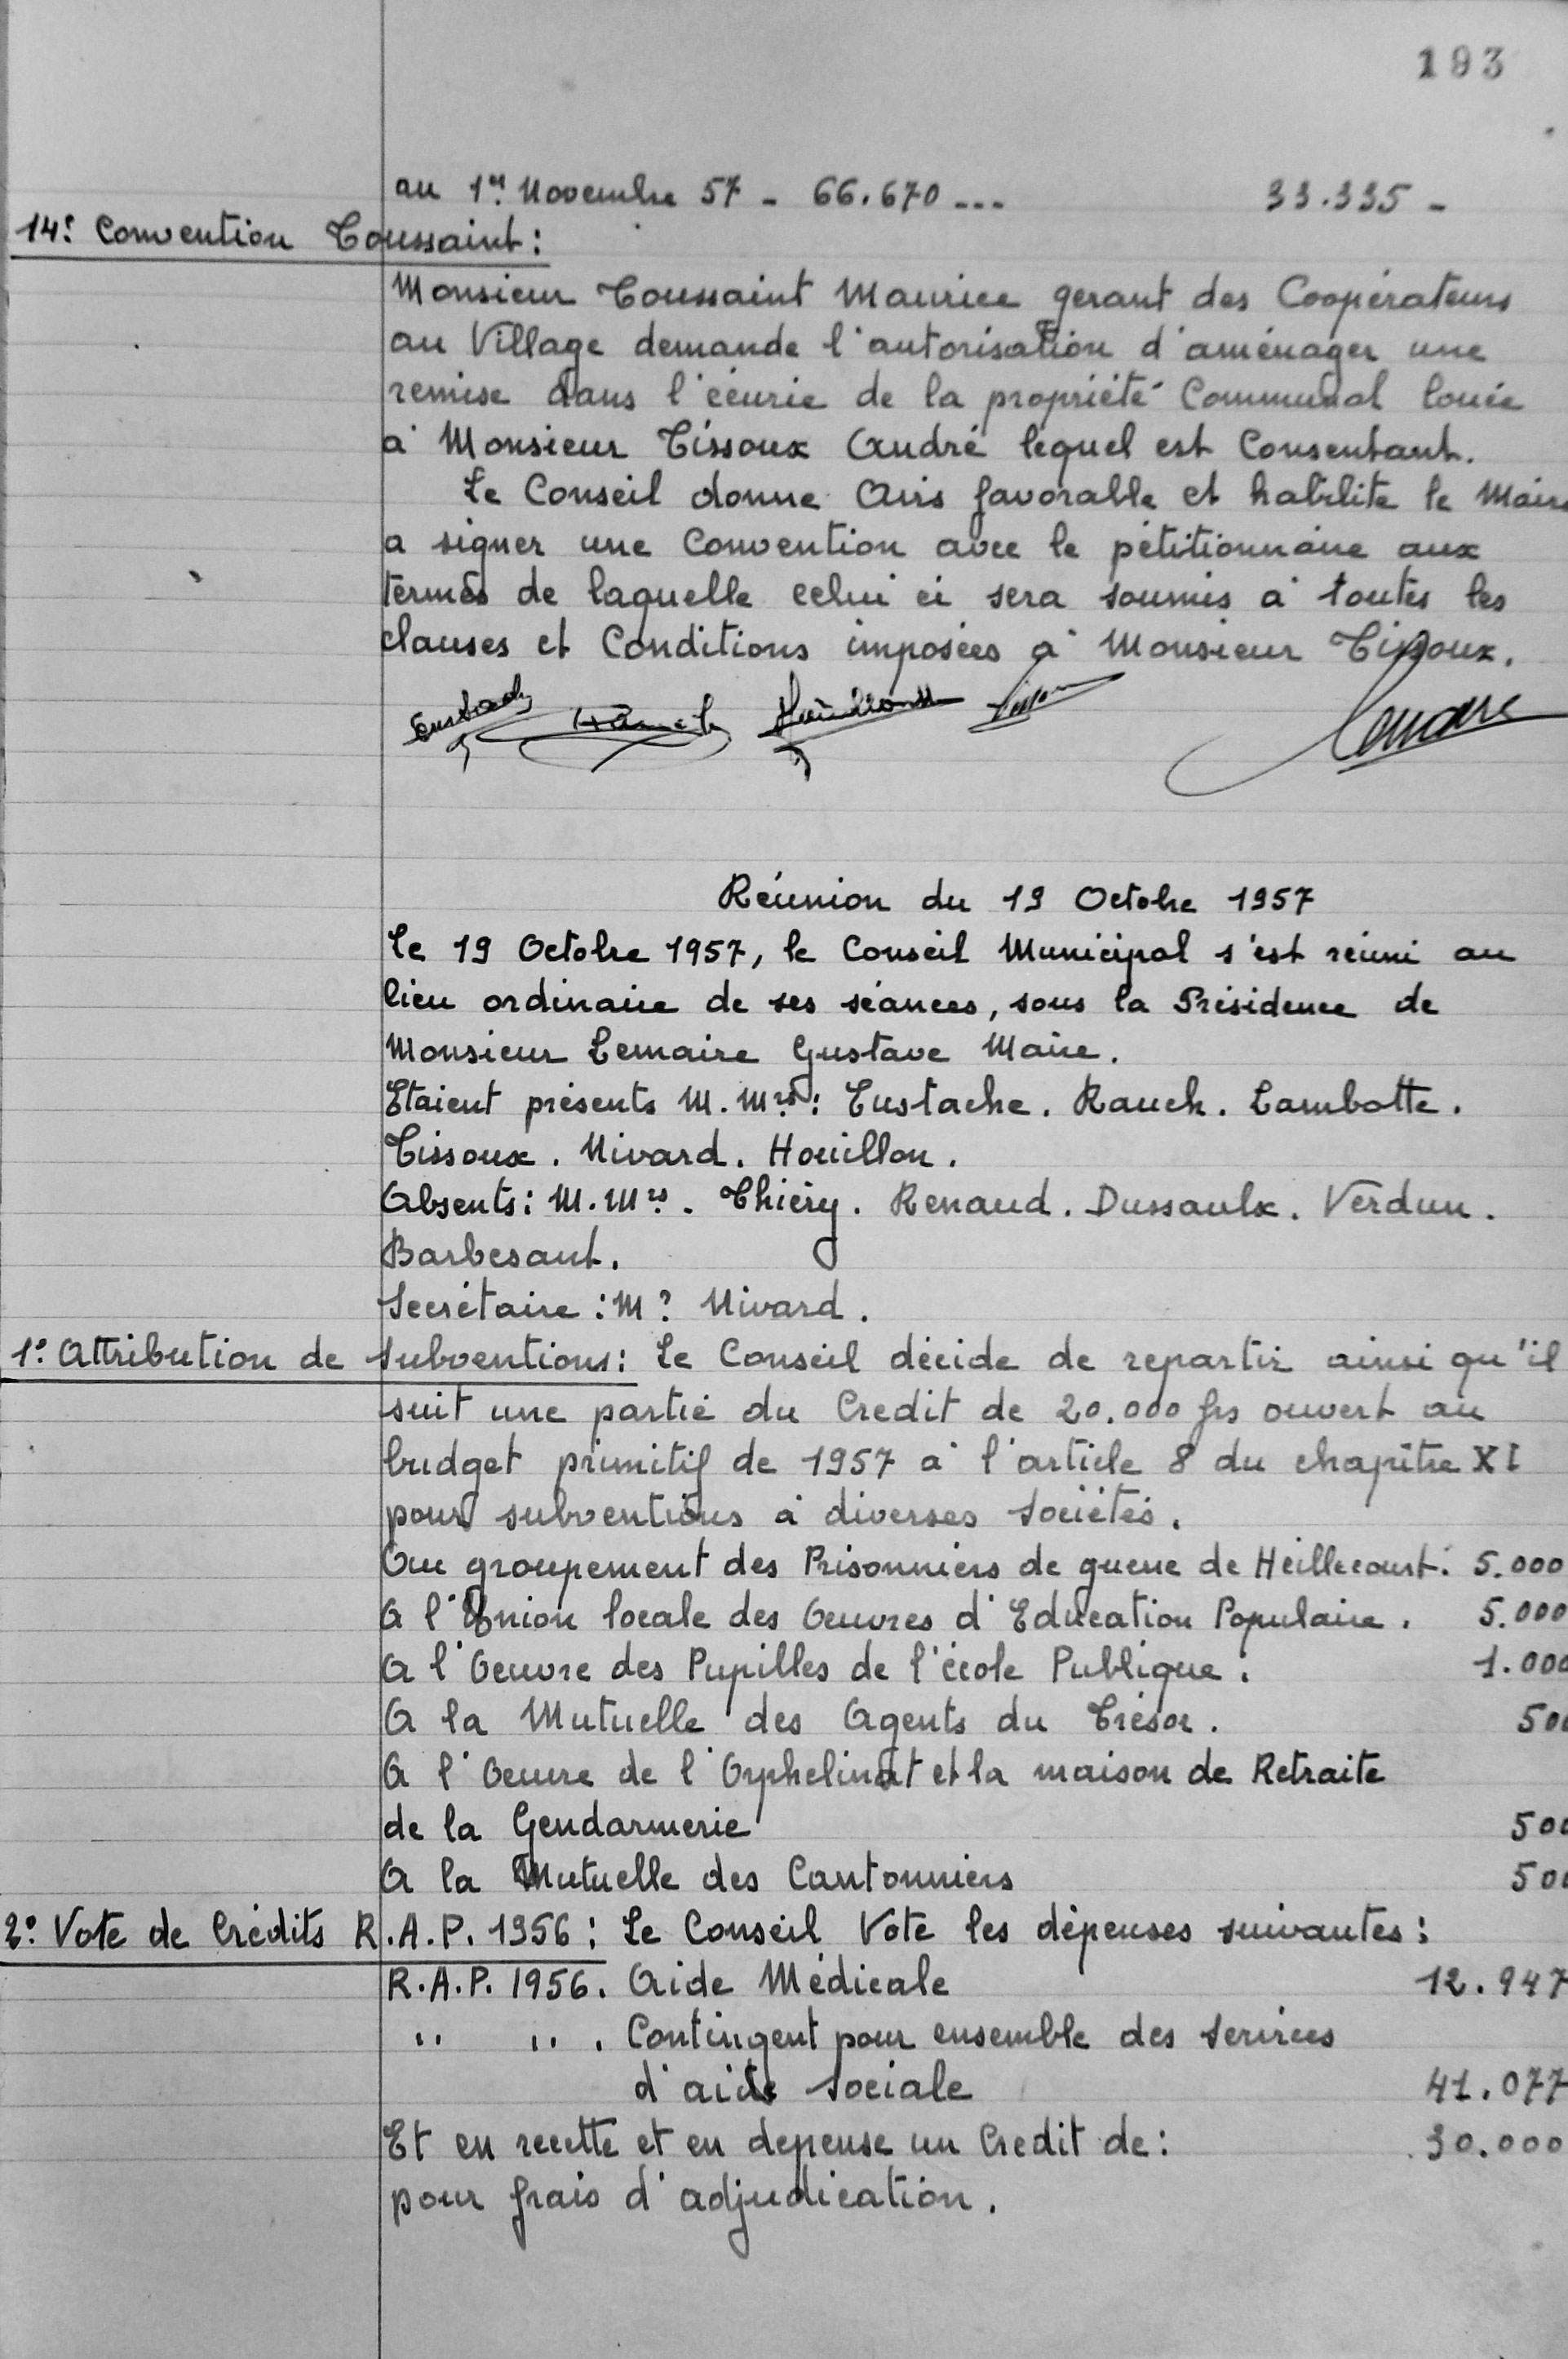 193
au 1er Novembre 57 - 66.670 --- 33.335 -
14: Convention Toussaint:
Monsieur Toussaint Maurice gerant des Coopérateurs
au Village demande l'autorisation d'aménager une
remise dans l'écurie de la propriété Communal louée
à Monsieur Tissoux André lequel est Consentant.
Le Conseil donne Avis favorable et habilite le Maire
a signer une Convention avec le pétitionnaire aux
termes de laquelle celui ci sera soumis à toutes les
clauses et Conditions imposées à Monsieur Tissoux.
Réunion du 19 Octobre 1957
Le 19 Octobre 1957, le Conseil Municipal s'est réuni au
lieu ordinaire de ses séances, sous la Présidence de
Monsieur Lemaire Gustave Maire.
Etaient présents M.Mrs: Eustache. Rauch. Lambotte.
Tissoux. Nivard. Houillon.
Absents: M.Mrs. Thiéry. Renaud. Dussaulx. Verdun.
Barbesant.
Secrétaire: Mr Nivard.
1: Attribution de Subventions: Le Conseil décide de repartir ainsi qu'il
suit une partie du Credit de 20.000 frs ouvert au
budget primitif de 1957 à l'article 8 du chapitre XI
pour subventions à diverses Sociétés.
Au groupement des Prisonniers de guerre de Heillecourt: 5.000
A l'Union locale des Oeuvres d'Education Populaire. 5.000
A l'Oeuvre des Pupilles de l'école Publique: 1.000
A la Mutuelle des Agents du Trésor. 500
A l'Oeuvre de l'Orphelinat et la maison de Retraite
de la Gendarmerie 500
A la Mutuelle des Cantonniers 500
2: Vote de Crédits R.A.P. 1956: Le Conseil Vote les dépenses suivantes:
R.A.P. 1956. Aide Médicale 12.947
" " . Contingent pour ensemble des Services
d'aide Sociale 41.077
Et en recette et en depense un Credit de: 30.000
pour frais d'adjudication.